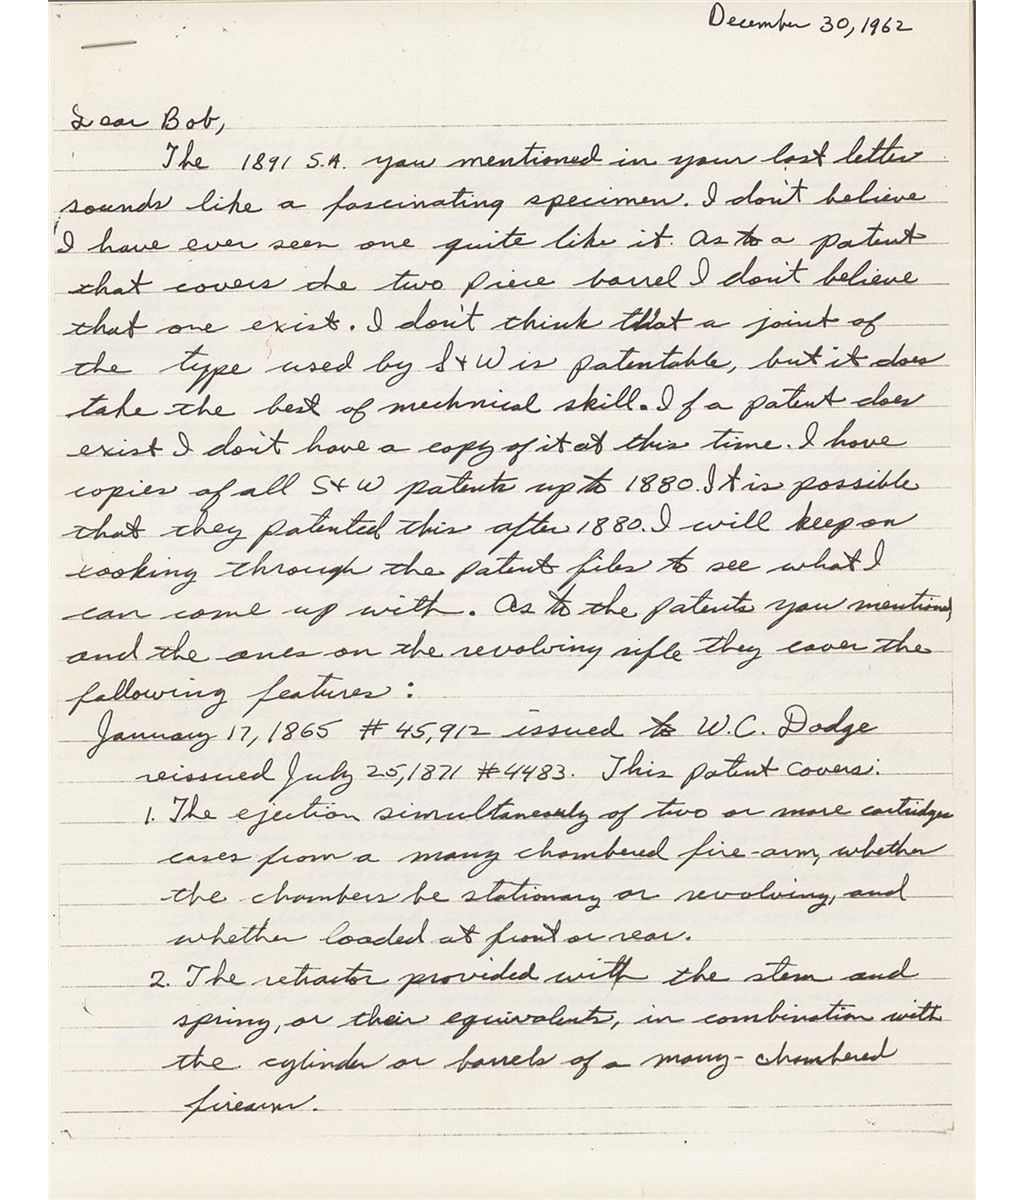 December 30, 1962
Dear Bob,
The 1891 S.A. you mentioned in your last letter
sounds like a fascinating specimen. I don't believe
I have ever seen one quite like it. As to a patent
that covers the two piece barrel I don't believe
that one exist. I don't think that a joint of
the type used by S+W is patentable, but it does
take the best of mechnical skill. If a patent does
exist I don't have a copy of it at this time. I have
copies of all S+W patents up to 1880. It is possible
that they patented this after 1880. I will keep on
looking through the patent files to see what I
can come up with. As to the patents you mentioned,
and the ones on the revolving rifle they cover the
following features:
January 17, 1865 # 45,912 issued to W.C. Dodge
reissued July 25, 1871 #4483. This patent covers:
1. The ejection simultaneously of two or more cartridge
cases from a many chambered fire-arm, whether
the chambers be stationary or revolving, and
whether loaded at front or rear.
2. The retractor provided with the stem and
spring, or their equivalents, in combination with
the cylinder or barrels of a many-chambered
firearm.